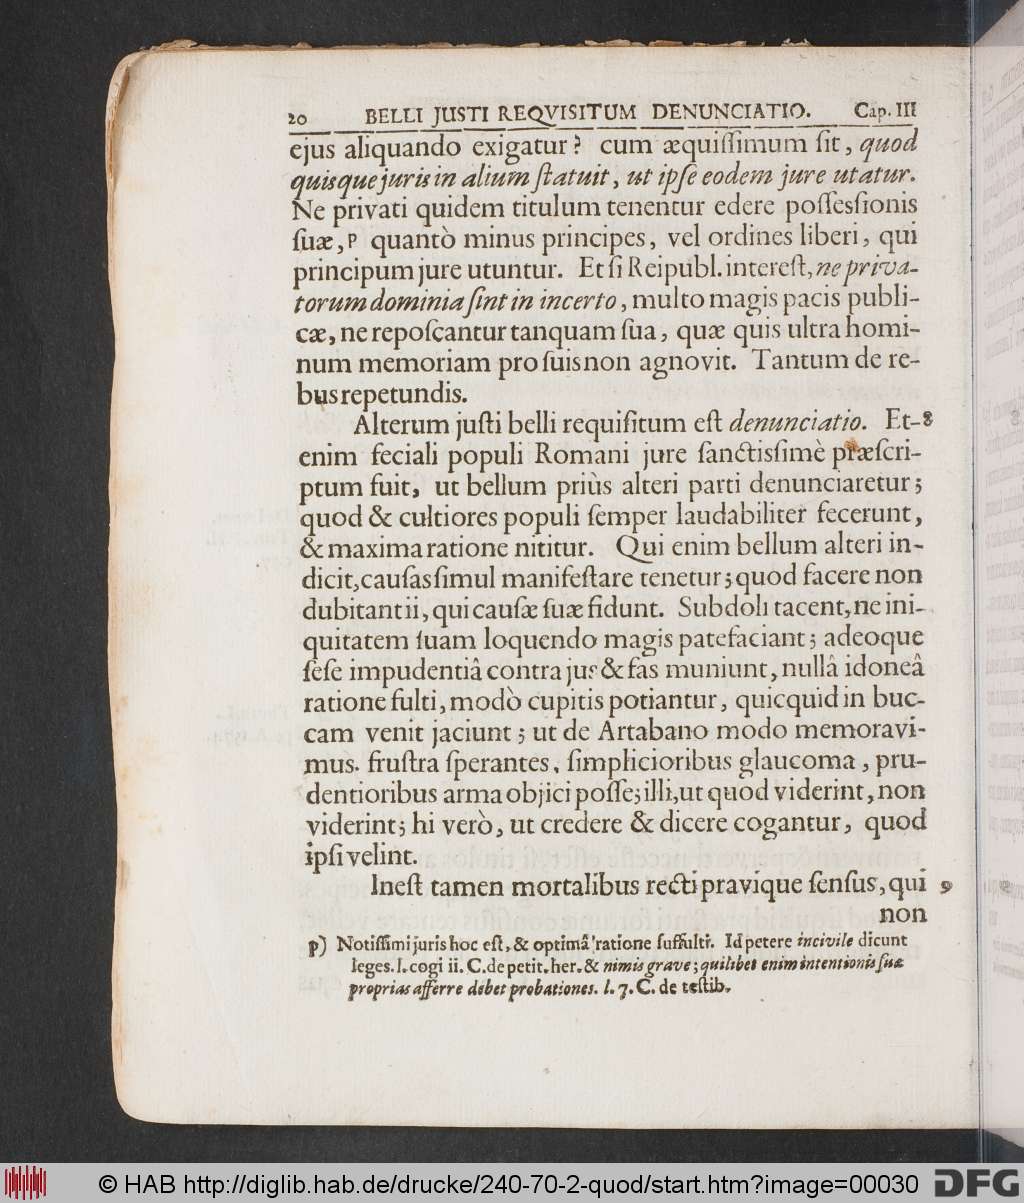 20 BELLI JUSTI REQVISITUM DENUNCIATIO. Cap. III
ejus aliquando exigatur? cum æquiſſimum ſit, quod
quisque juris in alium ſtatuit, ut ipſe eodem jure utatur.
Ne privati quidem titulum tenentur edere poſſesſionis
ſuæ, p quantò minus principes, vel ordines liberi, qui
principum jure utuntur. Et ſi Reipubl. intereſt, ne priva-
torum dominia ſint in incerto, multo magis pacis publi-
cæ, ne repoſcantur tanquam ſua, quæ quis ultra homi-
num memoriam pro ſuis non agnovit. Tantum de re-
bus repetundis.
Alterum juſti belli requiſitum eſt denunciatio. Et- 8
enim feciali populi Romani jure ſanctisſimè præſcri-
ptum fuit, ut bellum priùs alteri parti denunciaretur;
quod & cultiores populi ſemper laudabiliter fecerunt,
& maxima ratione nititur. Qui enim bellum alteri in-
dicit, cauſas ſimul manifeſtare tenetur; quod facere non
dubitant ii, qui cauſæ ſuæ fidunt. Subdoli tacent, ne ini-
quitatem ſuam loquendo magis patefaciant; adeoque
ſeſe impudentiâ contra jus & fas muniunt, nullâ idoneâ
ratione fulti, modò cupitis potiantur, quicquid in buc-
cam venit jaciunt; ut de Artabano modo memoravi-
mus. fruſtra ſperantes, ſimplicioribus glaucoma, pru-
dentioribus arma objici poſſe; illi, ut quod viderint, non
viderint; hi verò, ut credere & dicere cogantur, quod
ipſi velint.
Ineſt tamen mortalibus recti pravique ſenſus, qui 9
non
p) Notiſſimi juris hoc eſt, & optimâ ratione ſuffulti. Id petere incivile dicunt
leges. l. cogi ii. C. de petit. her. & nimis grave; quilibet enim intentionis ſuæ
proprias afferre debet probationes. l. 7. C. de teſtib.
© HAB http://diglib.hab.de/drucke/240-70-2-quod/start.htm?image=00030
DFG